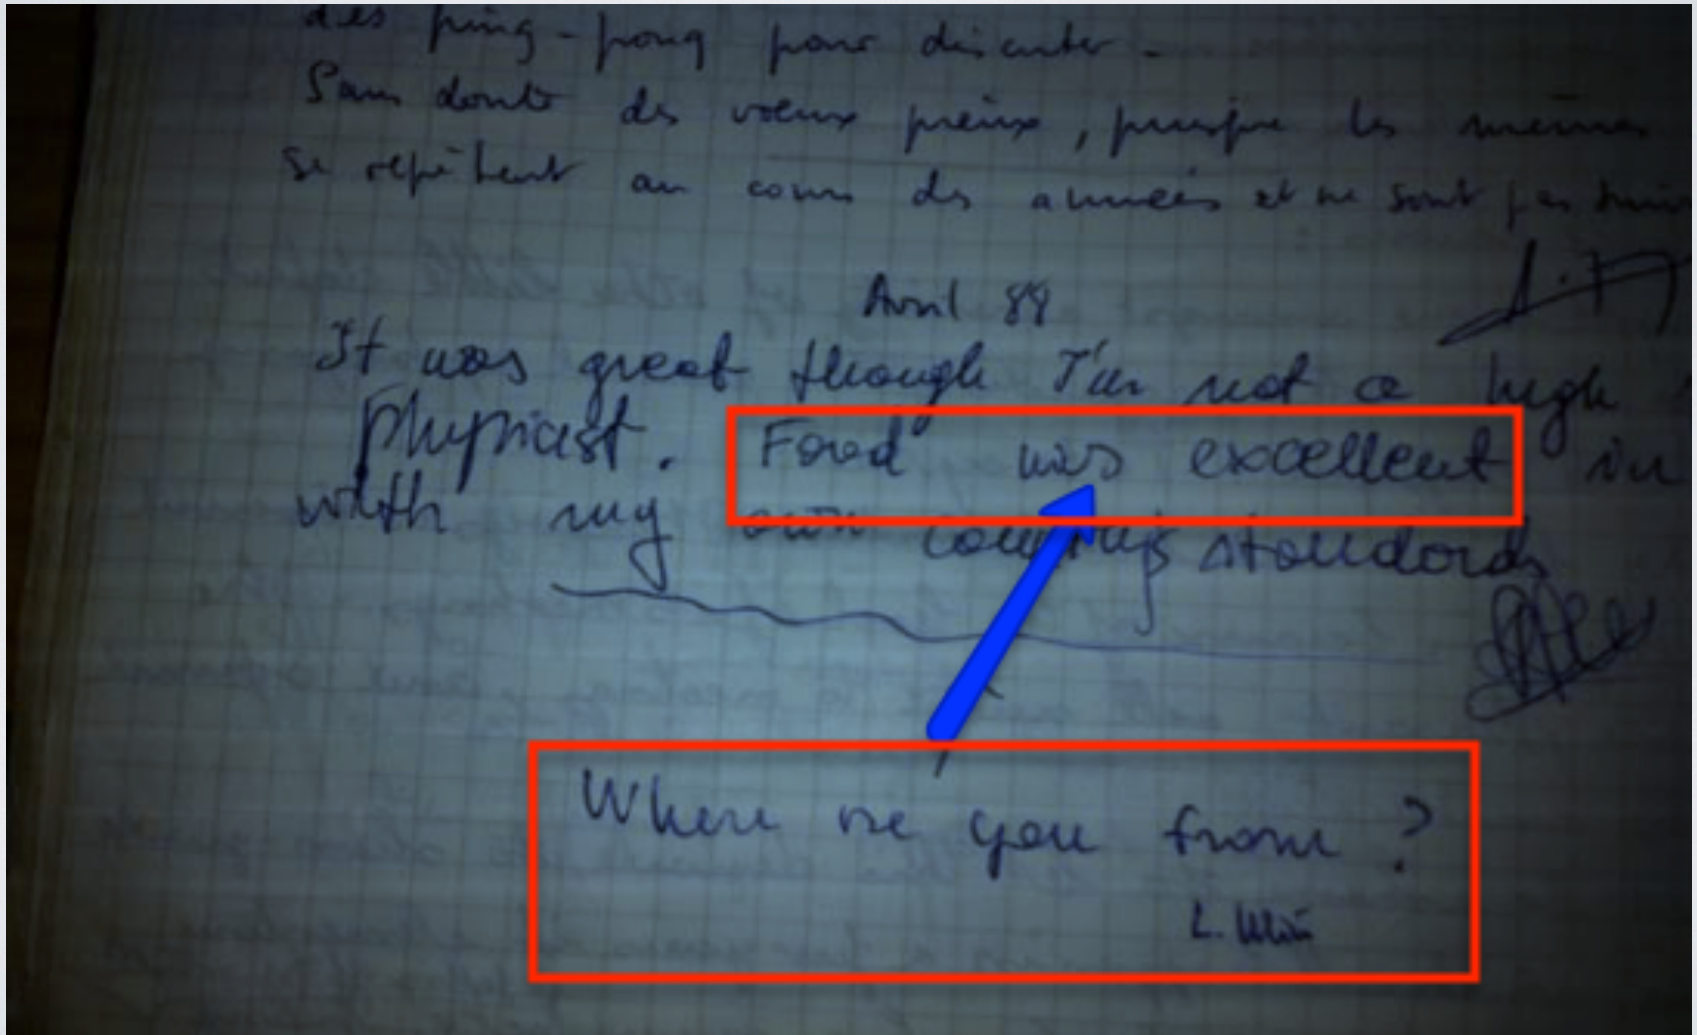 des ping-pong pour discuter.
Sans doute des voeux pieux, puisque les mêmes
se répètent au cours des années et ne sont pas
Avril 88
It was great though I'm not a high
Physicist. Food was excellent in
with my own standards
Where are you from ?
L.